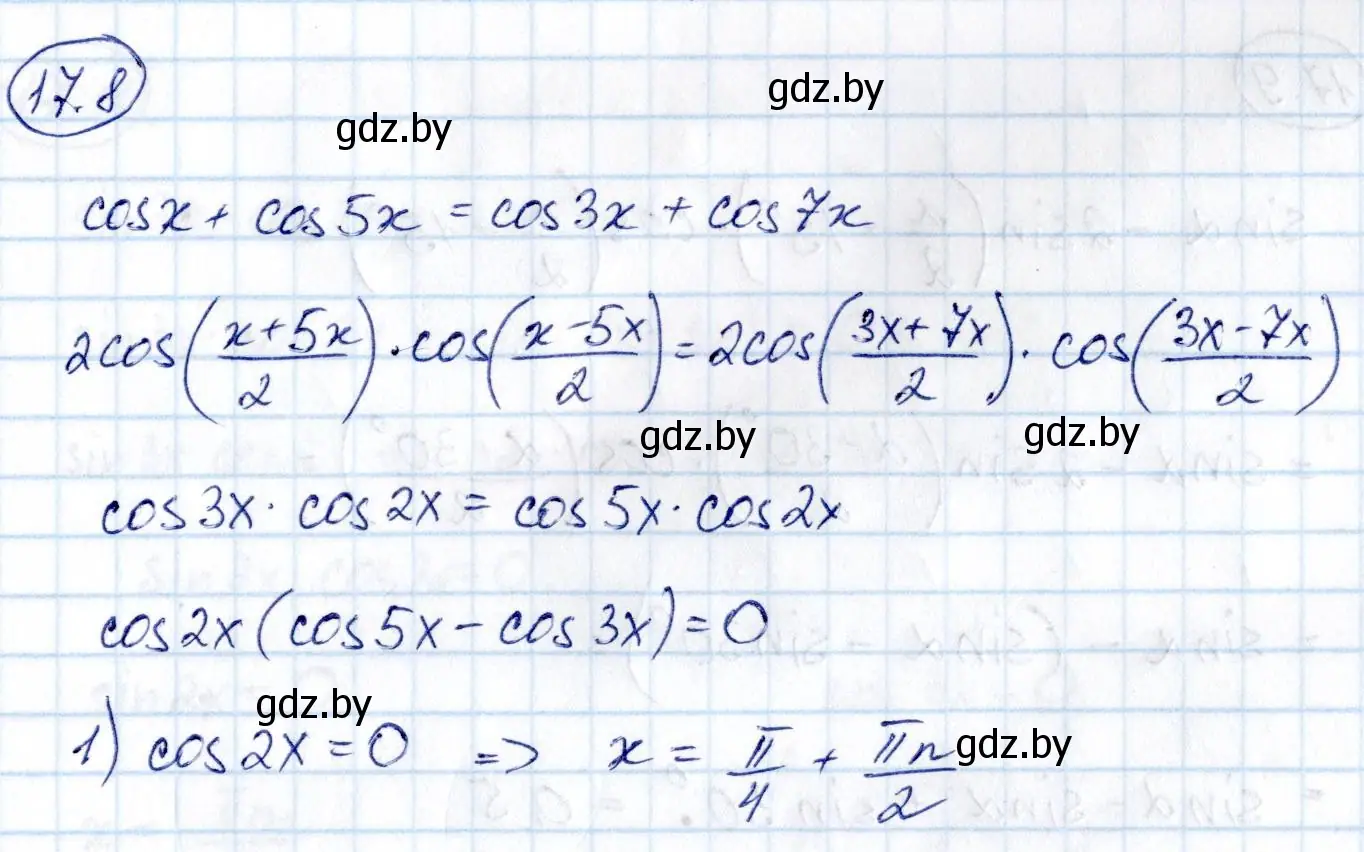 17.8
gdz.by
gdz.by
cosx + cos5x = cos3x + cos7x
2cos((x+5x)/2)·cos((x-5x)/2) = 2cos((3x+7x)/2)·cos((3x-7x)/2)
gdz.by
gdz.by
cos3x·cos2x = cos5x·cos2x
cos2x(cos5x-cos3x)=0
gdz.by
1) cos2x=0 => x = π/4 + πn/2
gdz.by